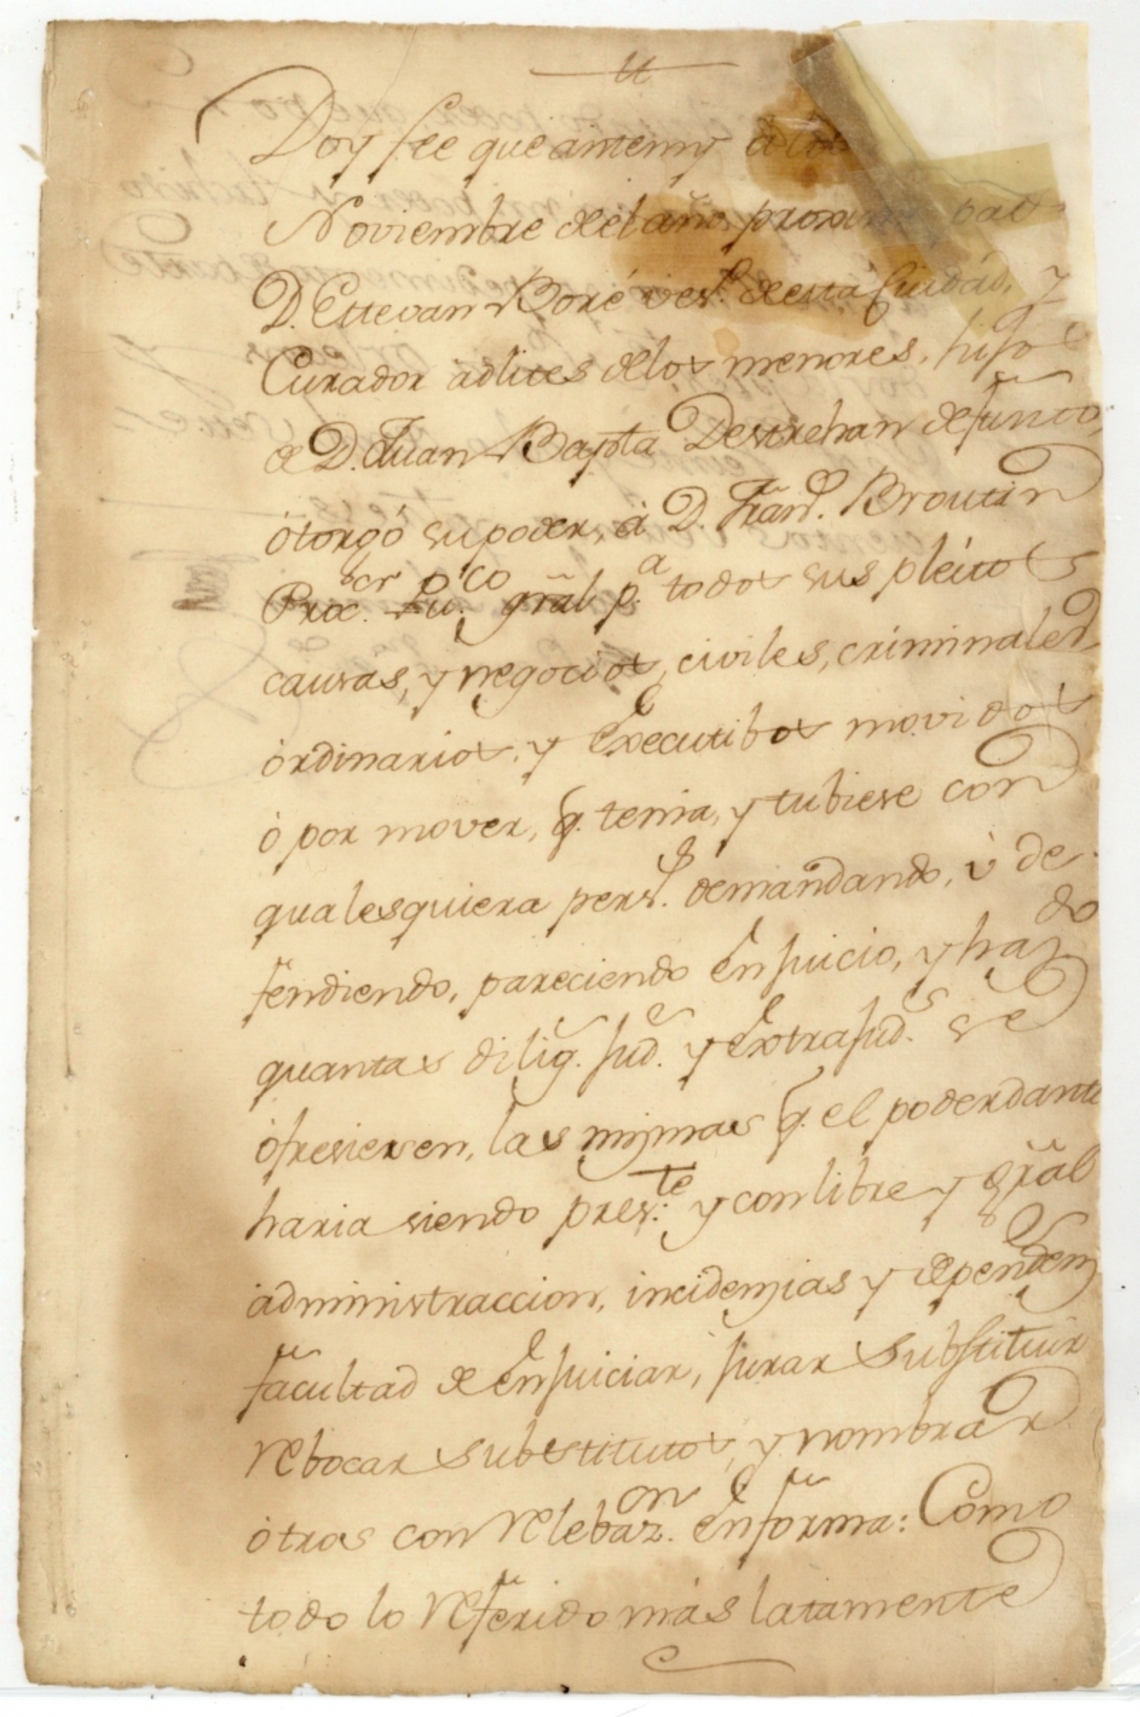 Doy fee que antemy à los
Noviembre del año proximo pas
D. Estevan Boré ves.º de esta Ciudad, y
Curador adlites de los menores, hijo
de D. Juan Bapta Destrehan defunto,
òtorgó su poder, à D. Fran.co Broutin
Proc.or Pu.co gñal p.a todos sus pleitos
causas, y negocios, civiles, criminales
òrdinarios, y Executibos movidos
ò por mover, q. tenia, y tubiese con
qualesquiera pers.s demandando, ù de
fendiendo, pareciendo En juicio, y haz.do
quantas dilig.s jud.s y Extrajud.s se
òfresiesen, las mismas q. el poderdante
haria siendo pres.te y con libre y gral
administraccion, incidenzias y dependen
facultad de Enjuiciar, jurar Substituir
Rebocar Substitutos, y nombrar
òtros con Relebaz.on En forma: Como
todo lo Referido màs latamente